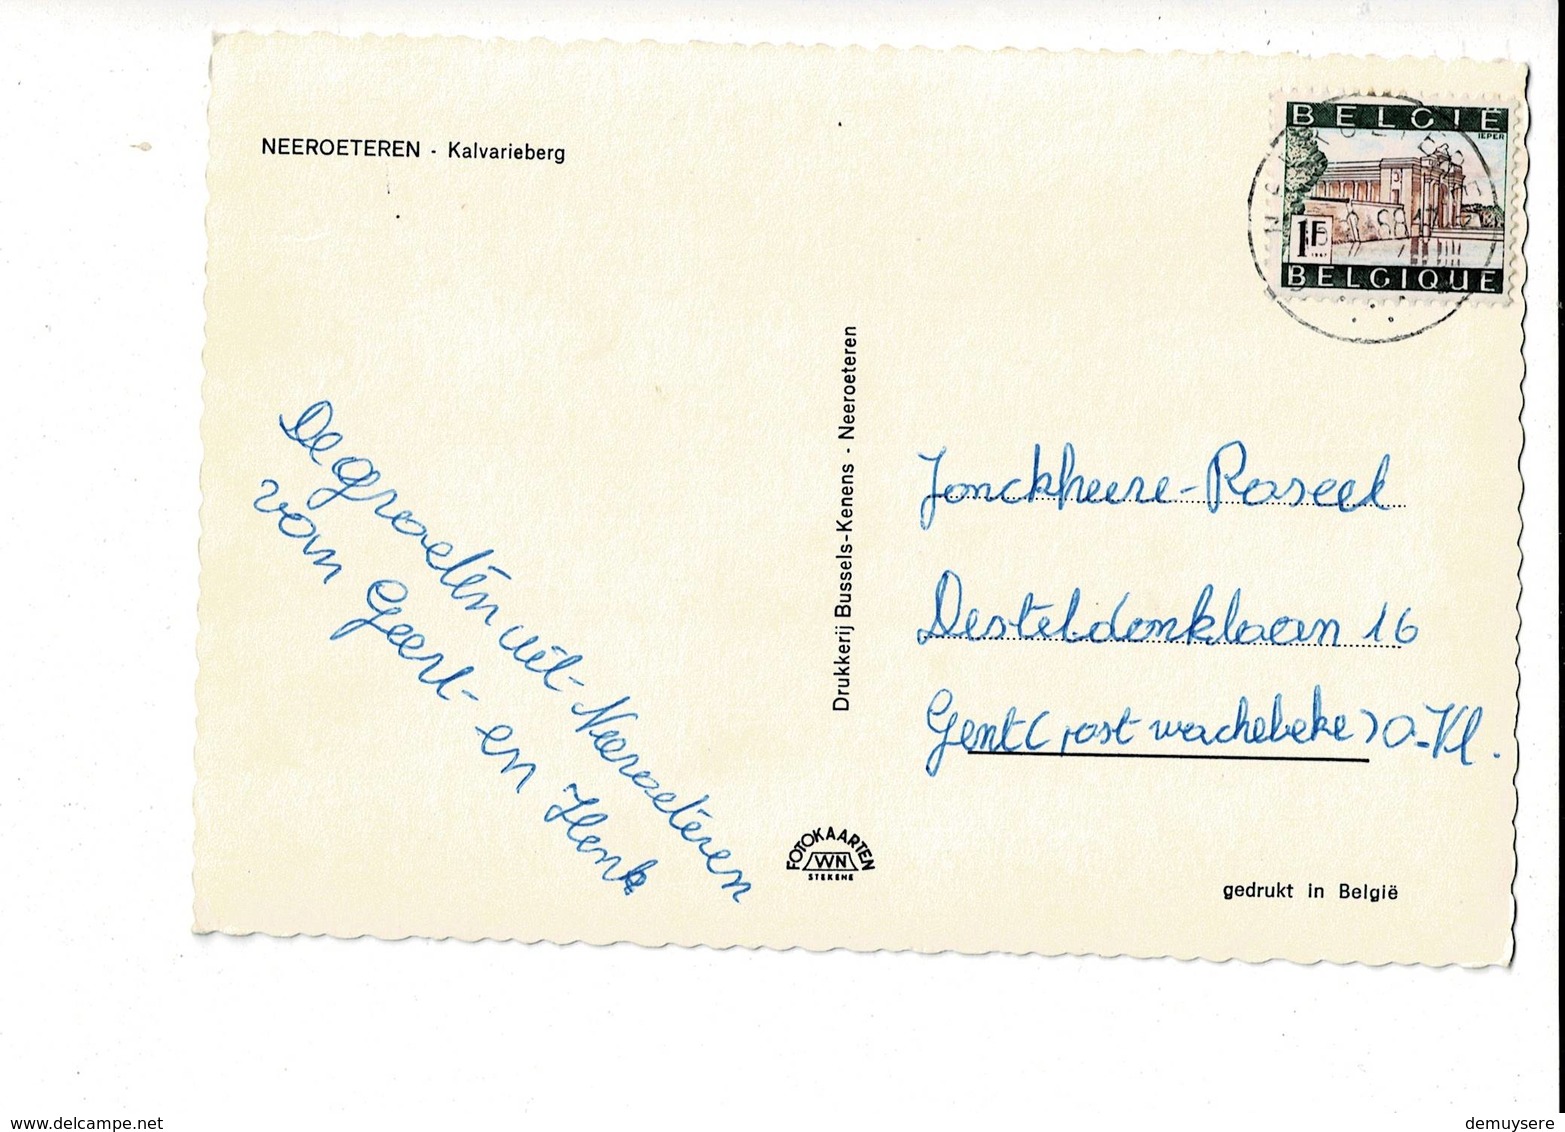 NEEROETEREN - Kalvarieberg
BELGIË
IEPER
1F
BELGIQUE
De groeten uit Neeroeteren
van Geert en Henk
Drukkerij Bussels-Kenens - Neeroeteren
Jonckheere-Roseel
Desteldonklaan 16
Gent (post wachebeke) O-Vl.
FOTOKAARTEN
WN
STEKENE
gedrukt in België
www.delcampe.net
demuysere